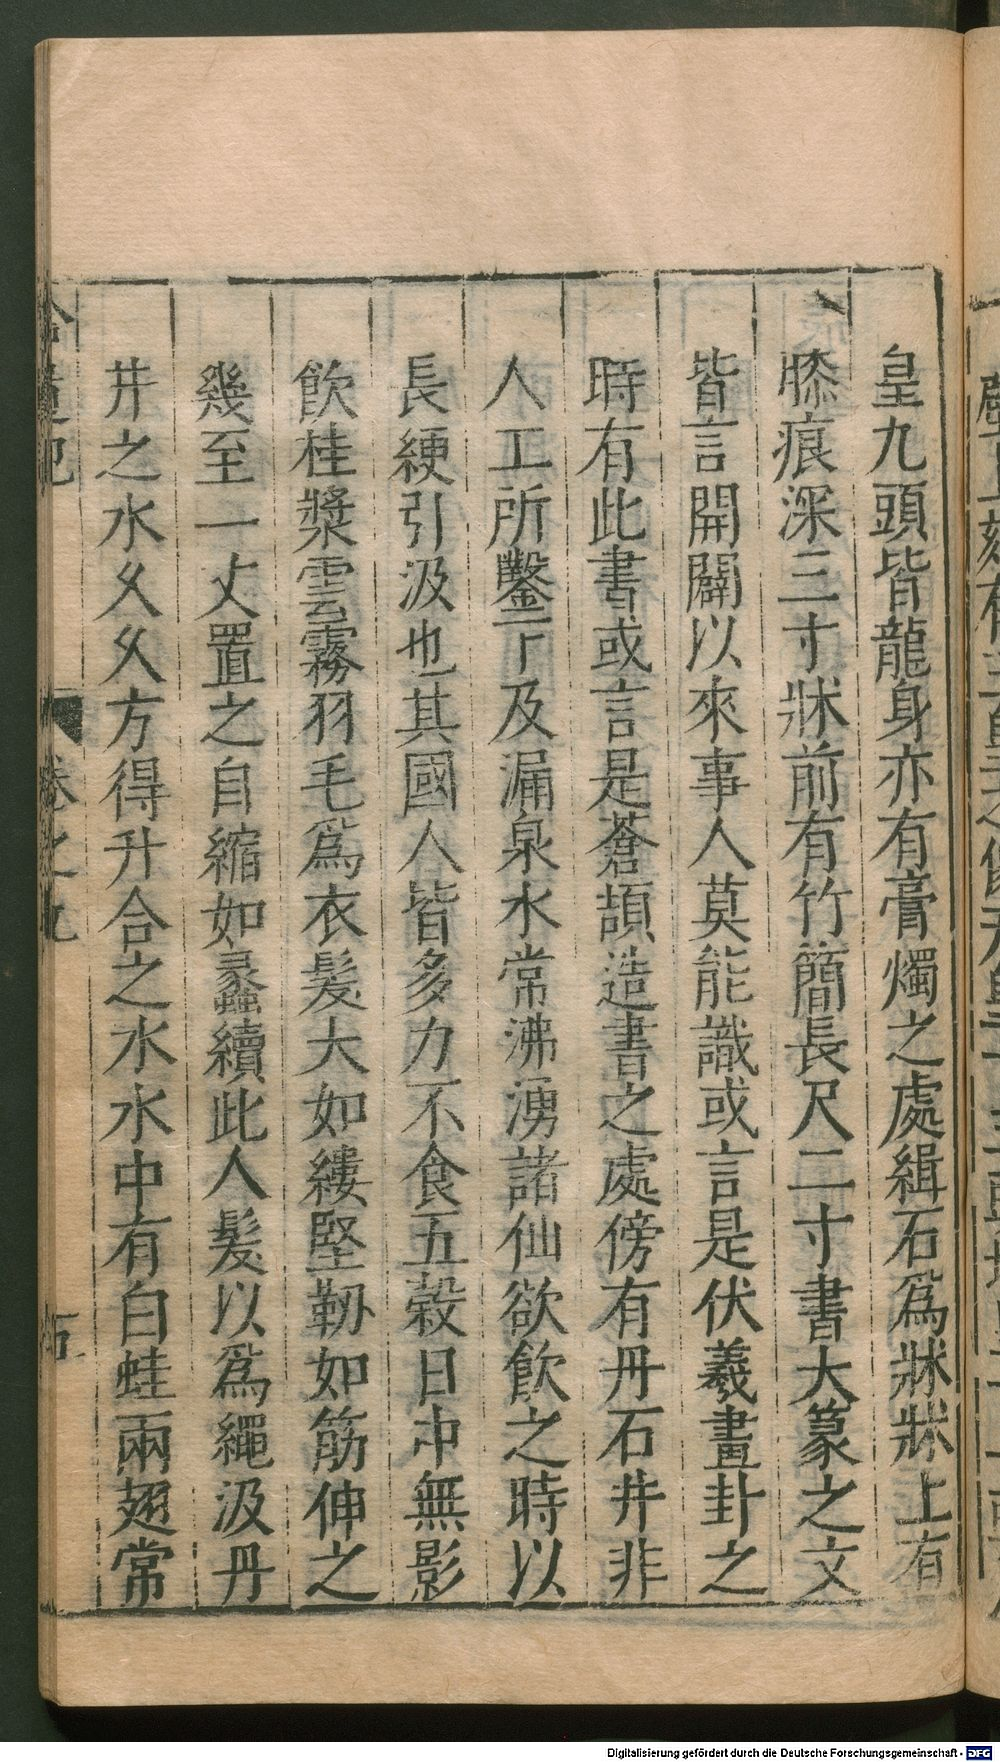 皇九頭皆龍身亦有膏燭之處緝石爲牀牀上有
膝痕深三寸牀前有竹簡長尺二寸書大篆之文
皆言開闢以來事人莫能識或言是伏羲畫卦之
時有此書或言是蒼頡造書之處傍有丹石井非
人工所鑿下及漏泉水常沸湧諸仙欲飲之時以
長綆引汲也其國人皆多力不食五榖日中無影
飲桂漿雲霧羽毛爲衣髮大如縷堅韌如筋伸之
幾至一丈置之自縮如蠡續此人髮以爲繩汲丹
井之水久久方得升合之水水中有白蛙兩翅常
拾遺記 卷之九 五
Digitalisierung gefördert durch die Deutsche Forschungsgemeinschaft - DFG